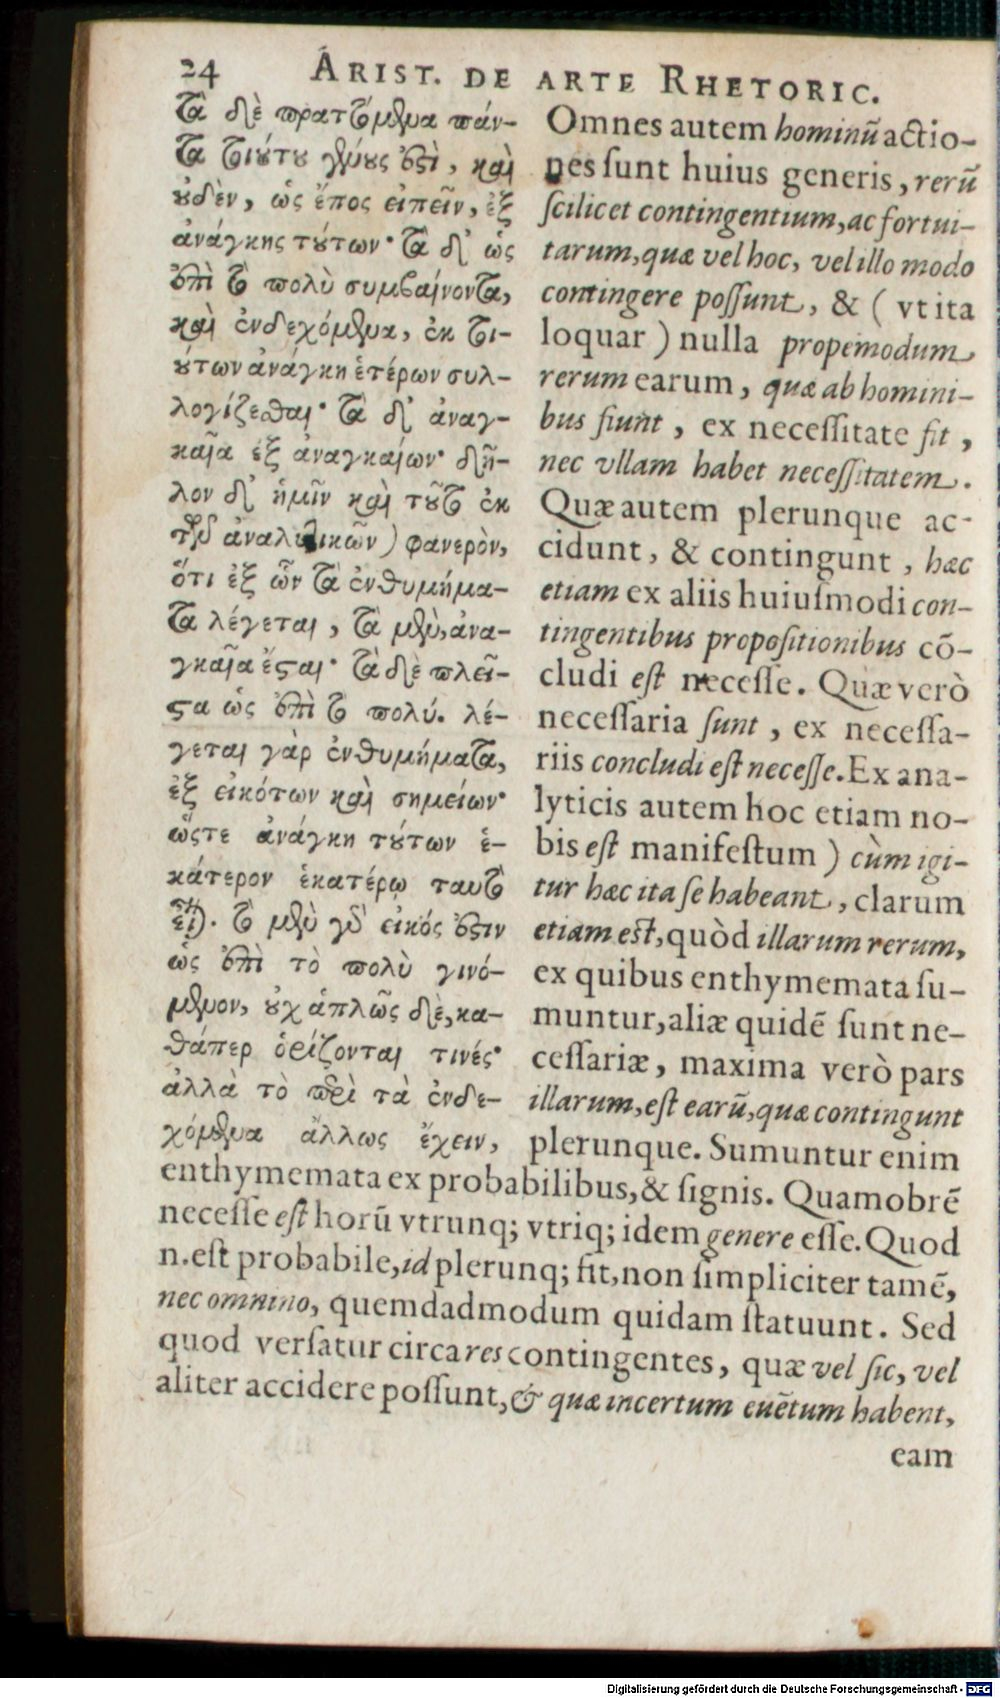 24 ARIST. DE ARTE RHETORIC.
τὰ δὲ πραττόμενα πάν-
τα τοιούτου γένους ἐστὶ, καὶ
οὐδὲν, ὡς ἔπος εἰπεῖν, ἐξ
ἀνάγκης τούτων· τὰ δ' ὡς
ἐπὶ τὸ πολὺ συμβαίνοντα,
καὶ ἐνδεχόμενα, ἐκ τοι-
ούτων ἀνάγκη ἑτέρων συλ-
λογίζεσθαι· τὰ δ' ἀναγ-
καῖα ἐξ ἀναγκαίων· δῆ-
λον δ' ἡμῖν καὶ τοῦτο ἐκ
τῶν ἀναλυτικῶν) φανερὸν,
ὅτι ἐξ ὧν τὰ ἐνθυμήμα-
τα λέγεται, τὰ μὲν, ἀνα-
γκαῖα ἔσται· τὰ δὲ πλεῖ-
στα ὡς ἐπὶ τὸ πολύ. λέ-
γεται γὰρ ἐνθυμήματα,
ἐξ εἰκότων καὶ σημείων·
ὥστε ἀνάγκη τούτων ἑ-
κάτερον ἑκατέρῳ ταυτὸ
εἶναι. τὸ μὲν γὰρ εἰκός ἐστιν
ὡς ἐπὶ τὸ πολὺ γινό-
μενον, οὐχ ἁπλῶς δὲ, κα-
θάπερ ὁρίζονται τινές·
ἀλλὰ τὸ περὶ τὰ ἐνδε-
χόμενα ἄλλως ἔχειν,
Omnes autem hominū actio-
nes ſunt huius generis, rerū
ſcilicet contingentium, ac fortui-
tarum, quæ vel hoc, vel illo modo
contingere poſſunt, & ( vt ita
loquar ) nulla propemodum
rerum earum, quæ ab homini-
bus fiunt, ex neceſſitate fit,
nec vllam habet neceſſitatem.
Quæ autem plerunque ac-
cidunt, & contingunt, hæc
etiam ex aliis huiuſmodi con-
tingentibus propoſitionibus cō-
cludi eſt neceſſe. Quæ verò
neceſſaria ſunt, ex neceſſa-
riis concludi eſt neceſſe. Ex ana-
lyticis autem hoc etiam no-
bis eſt manifeſtum ) cùm igi-
tur hæc ita ſe habeant, clarum
etiam eſt, quòd illarum rerum,
ex quibus enthymemata ſu-
muntur, aliæ quidē ſunt ne-
ceſſariæ, maxima verò pars
illarum, eſt earū, quæ contingunt
plerunque. Sumuntur enim
enthymemata ex probabilibus, & ſignis. Quamobrē
neceſſe eſt horū vtrunq; vtriq; idem genere eſſe. Quod
n. eſt probabile, id plerunq; fit, non ſimpliciter tamē,
nec omnino, quemdadmodum quidam ſtatuunt. Sed
quod verſatur circa res contingentes, quæ vel ſic, vel
aliter accidere poſſunt, & quæ incertum euētum habent,
eam
Digitalisierung gefördert durch die Deutsche Forschungsgemeinschaft - DFG